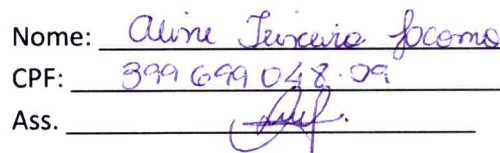 Nome: Aline Teixeira Jocomo
CPF: 399 699 048.09
Ass.